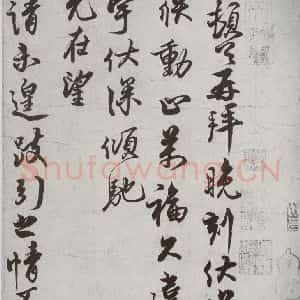 頓首再拜晚刻伏
候動止萬福久
宇伏深傾馳
在望
請未遑跂引之情
Shufawang.CN